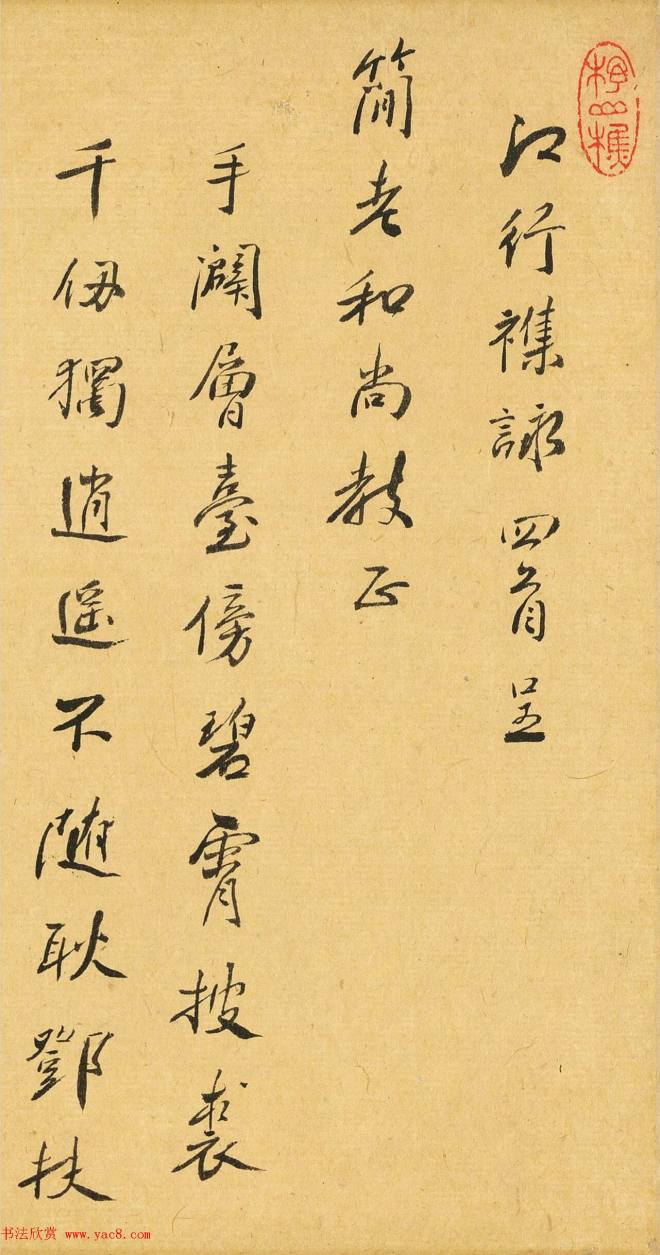 江行襍詠四首呈
簡老和尚教正
手闢層臺傍碧霄披裘
千仞獨逍遥不随耿鄧扶
书法欣赏 www.yac8.com